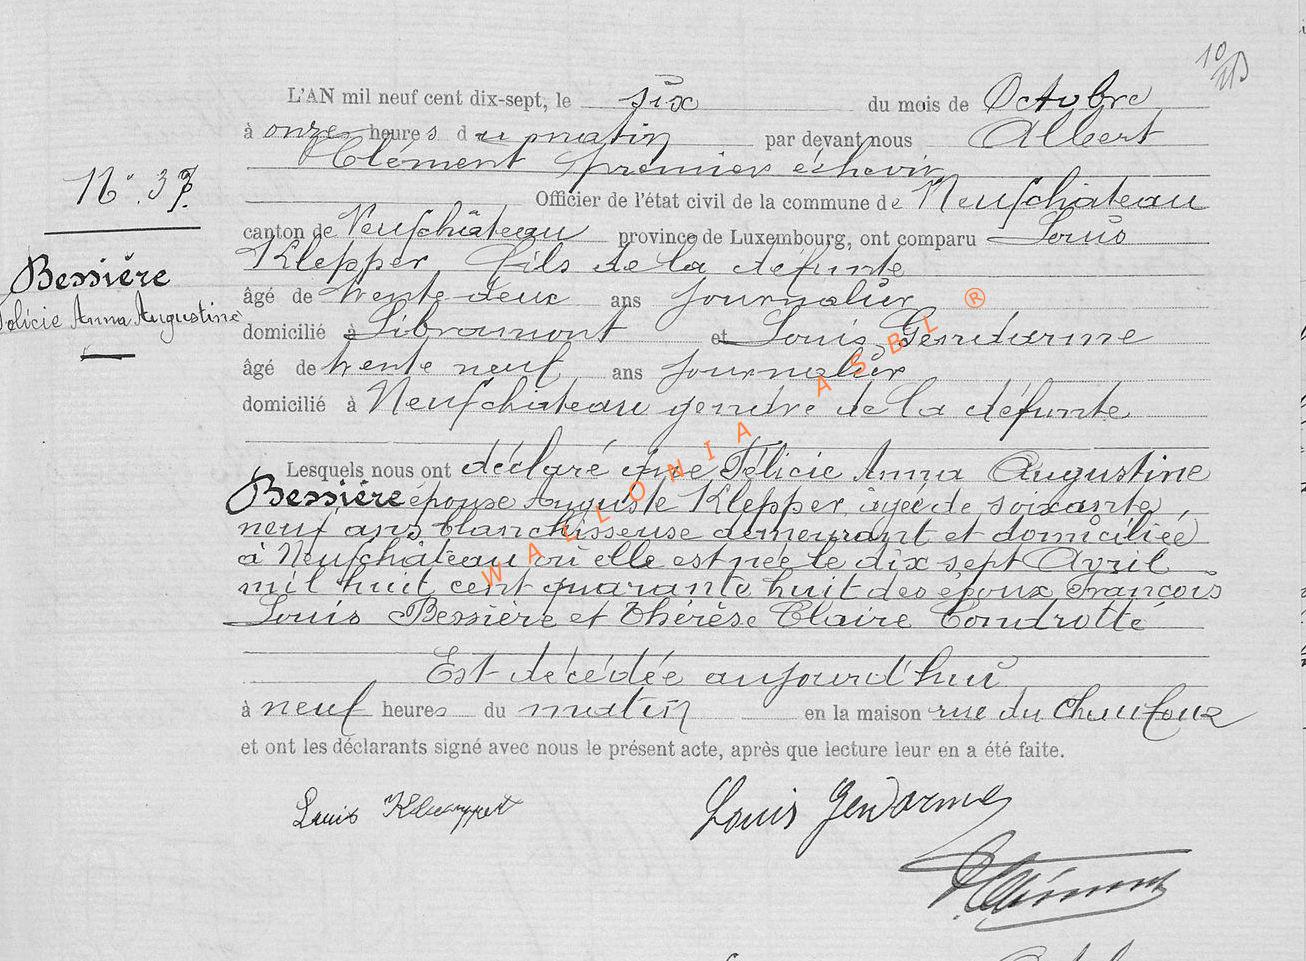 L'AN mil neuf cent dix-sept, le six du mois de Octobre
à onze heures du matin par devant nous Albert
Clément premier échevin
Officier de l'état civil de la commune de Neufchateau
canton de Neufchâteau province de Luxembourg, ont comparu Louis
Klepper fils de la défunte
âgé de trente deux ans journalier
domicilié à Libramont et Louis Gendarme
âgé de trente neuf ans journalier
domicilié à Neufchateau gendre de la défunte
N° 37.
Bessière
Félicie Anna Augustine
Lesquels nous ont déclaré que Félicie Anna Augustine
Bessière épouse Auguste Klepper, âgée de soixante
neuf ans blanchisseuse demeurant et domiciliée
à Neufchâteau où elle est née le dix sept Avril
mil huit cent quarante huit des époux François
Louis Bessière et Thérèse Claire Condrotte
Est décédée aujourd'hui
à neuf heures du matin en la maison rue du Chaufour
et ont les déclarants signé avec nous le présent acte, après que lecture leur en a été faite.
Louis
Louis Gendarme
AClément
WALLONIA ASBL ®